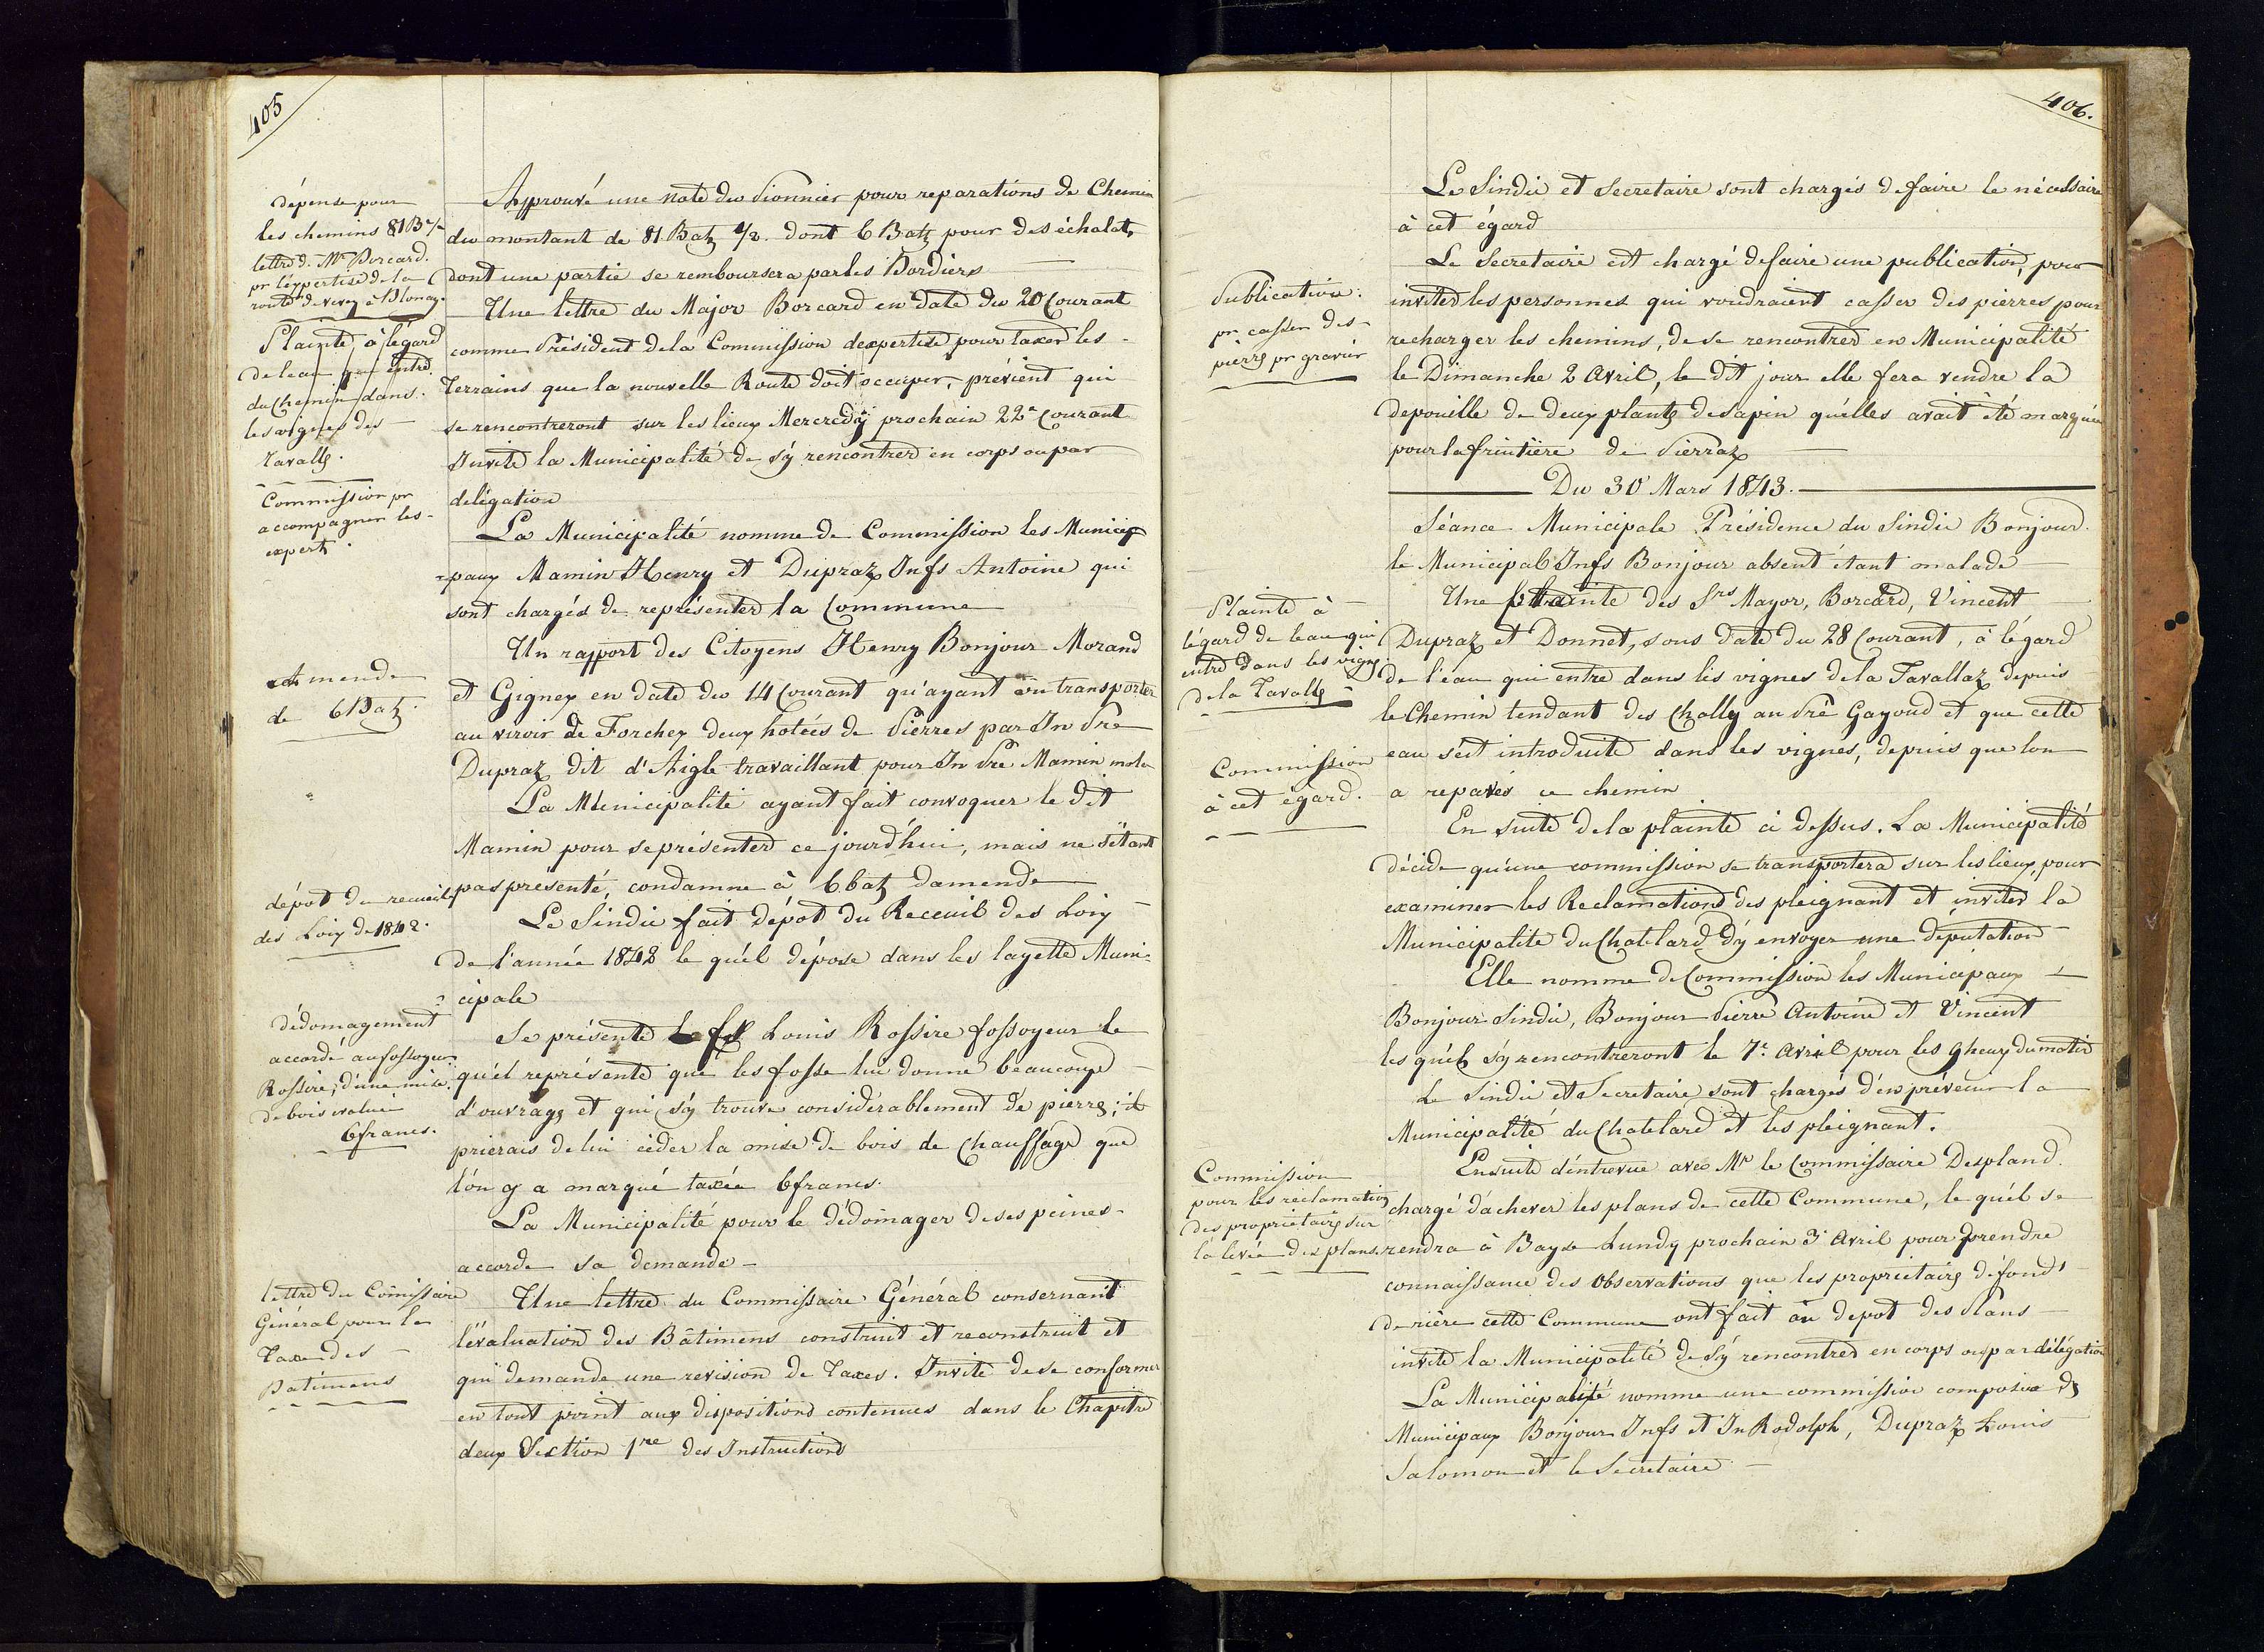 405
dépense pour
les chemins 81 Bz ½
lettre d. Mr Borcard.
pr l'éxpertise de la
route de Vevey à Blonay.
Plainte, à légard
de leau qui entre
du Chemin dans
les vignes des
Tavallz.
Commission pr
accompagner les
expertz.
Amende
de 6 Batz.
dépot du recueil
des Loix de 1842.
dédomagement
accordé au fossoyeur
Rossire, d'une mise
de bois évalué
6 francs.
lettre du Comissaire
Général pour la
Taxe des
Batimens
Approuvé une note du Pionnier pour reparations de Chemin
du montant de 81 Batz ½. dont 6 Batz pour des échalats
dont une partie se remboursera par les Bordiers
Une lettre du Major Borcard en date du 20 Courant
comme Président de la Commission dexpertise pour taxer les
Terrains que la nouvelle Route doit occuper, prévient qui
se rencontreront sur les lieux Mercredy prochain 22e Courant
Invite la Municipalité de s'y rencontrer en corps ou par
delégation
La Municipalité nomme de Commission les Municip
=paux Mamin Henry et Dupraz Jnfs Antoine qui
sont chargés de représenter la Commune
Un rapport des Citoyens Henry Bonjour Morand
et Gigney en date du 14 Courant qu'ayant vu transporter
au viroir de Forchex deux hotées de Pierres par Jn Pre
Dupraz dit d'Aigle travaillant pour Jn Pre Mamin
La Municipalité ayant fait convoquer le dit
Mamin pour se présenter ce jourd'hui, mais ne s'étant
pas présenté, condamne à 6 batz damende
Le Sindic fait dépot du Receuil des Loix
de l'année 1842 le quél dépose dans les layette Muni-
cipale
Se présente Louis Rossire fossoyeur le
quél représente que les fosse lui donne beaucoup
d'ouvrage et qui s'y trouve considérablement de pierres; il
prierais de lui céder la mise de bois de Chauffage que
l'on y a marqué taxée 6 francs.
La Municipalité pour le dédomager de ses peines
accorde sa demande
Une lettre du Commissaire Général consernant
l'évaluation des Bâtimens construit et reconstruit et
qui demande une revision de Taxes. Invite de se conformer
en tout point aux dispositions contenues dans le Chapitre
deux Section 1re des Instructions
406.
Publication.
pr casser des
pierres pr gravier
Plainte à
légard de leau qui
entre dans les vignes
de la Tavallz
Commission
à cet égard.
Commission
pour les reclamations
des propriétaires sur
la levée des plans.
Le Sindic et Secretaire sont chargés de faire le nécessaire
à cet égard
Le Secretaire est chargé de faire une publication, pour
inviter les personnes qui voudraient casser des pierres pour
recharger les chemins, de se rencontrer en Municipalité
le Dimanche 2 Avril, le dit jour elle fera vendre la
depouille de deux plantz de sapin qu'elles avait été marquée
pour la fruitière de Pierraz
Du 30 Mars 1843.
Séance Municipale Présidence du Sindic Bonjour.
le Municipal Jnfs Bonjour absent étant malade
Une plainte des Srs Mayor, Borcard, Vincent
Dupraz et Donnet, sous date du 28 Courant, à légard
de l'eau qui entre dans les vignes de la Tavallaz depuis
le Chemin tendant des Chally au Pré Gayoud et que cette
eau séit introduite dans les vignes, depuis que lon
a reparés ce chemin
En suite de la plainte ci dessus. La Municipalité
décide qu'une commission se transportera sur les lieux, pour
examiner les Reclamations des pleignant et inviter la
Municipalité du Chatelard d'y envoyer une députation
Elle nomme de Commission les Municipaux
Bonjour Sindic, Bonjour Pierre Antoine et Vincent
les quéls s'y rencontreront le 7e Avril pour les 9 heures du matin
Le Sindic et Secretaire sont chargés d'en prévenir la
Municipalité du Chatelard et les pleignant.
Ensuite déntrevue avec Mr le Commissaire Despland.
chargé d'achever les plans de cette Commune, le quél se
rendra à Bayse Lundy prochain 3e Avril pour prendre
connaissance des Observations que les propriétaires de fond
derière cette Commune ont fait au depot des Plans
invite la Municipalité de s'y rencontrer en corps ou par délégation
La Municipalité nomme une commission composée ds
Municipaux Bonjour Jnfs et Jn Rodolph, Dupraz Louis
Salomon et le Secretaire